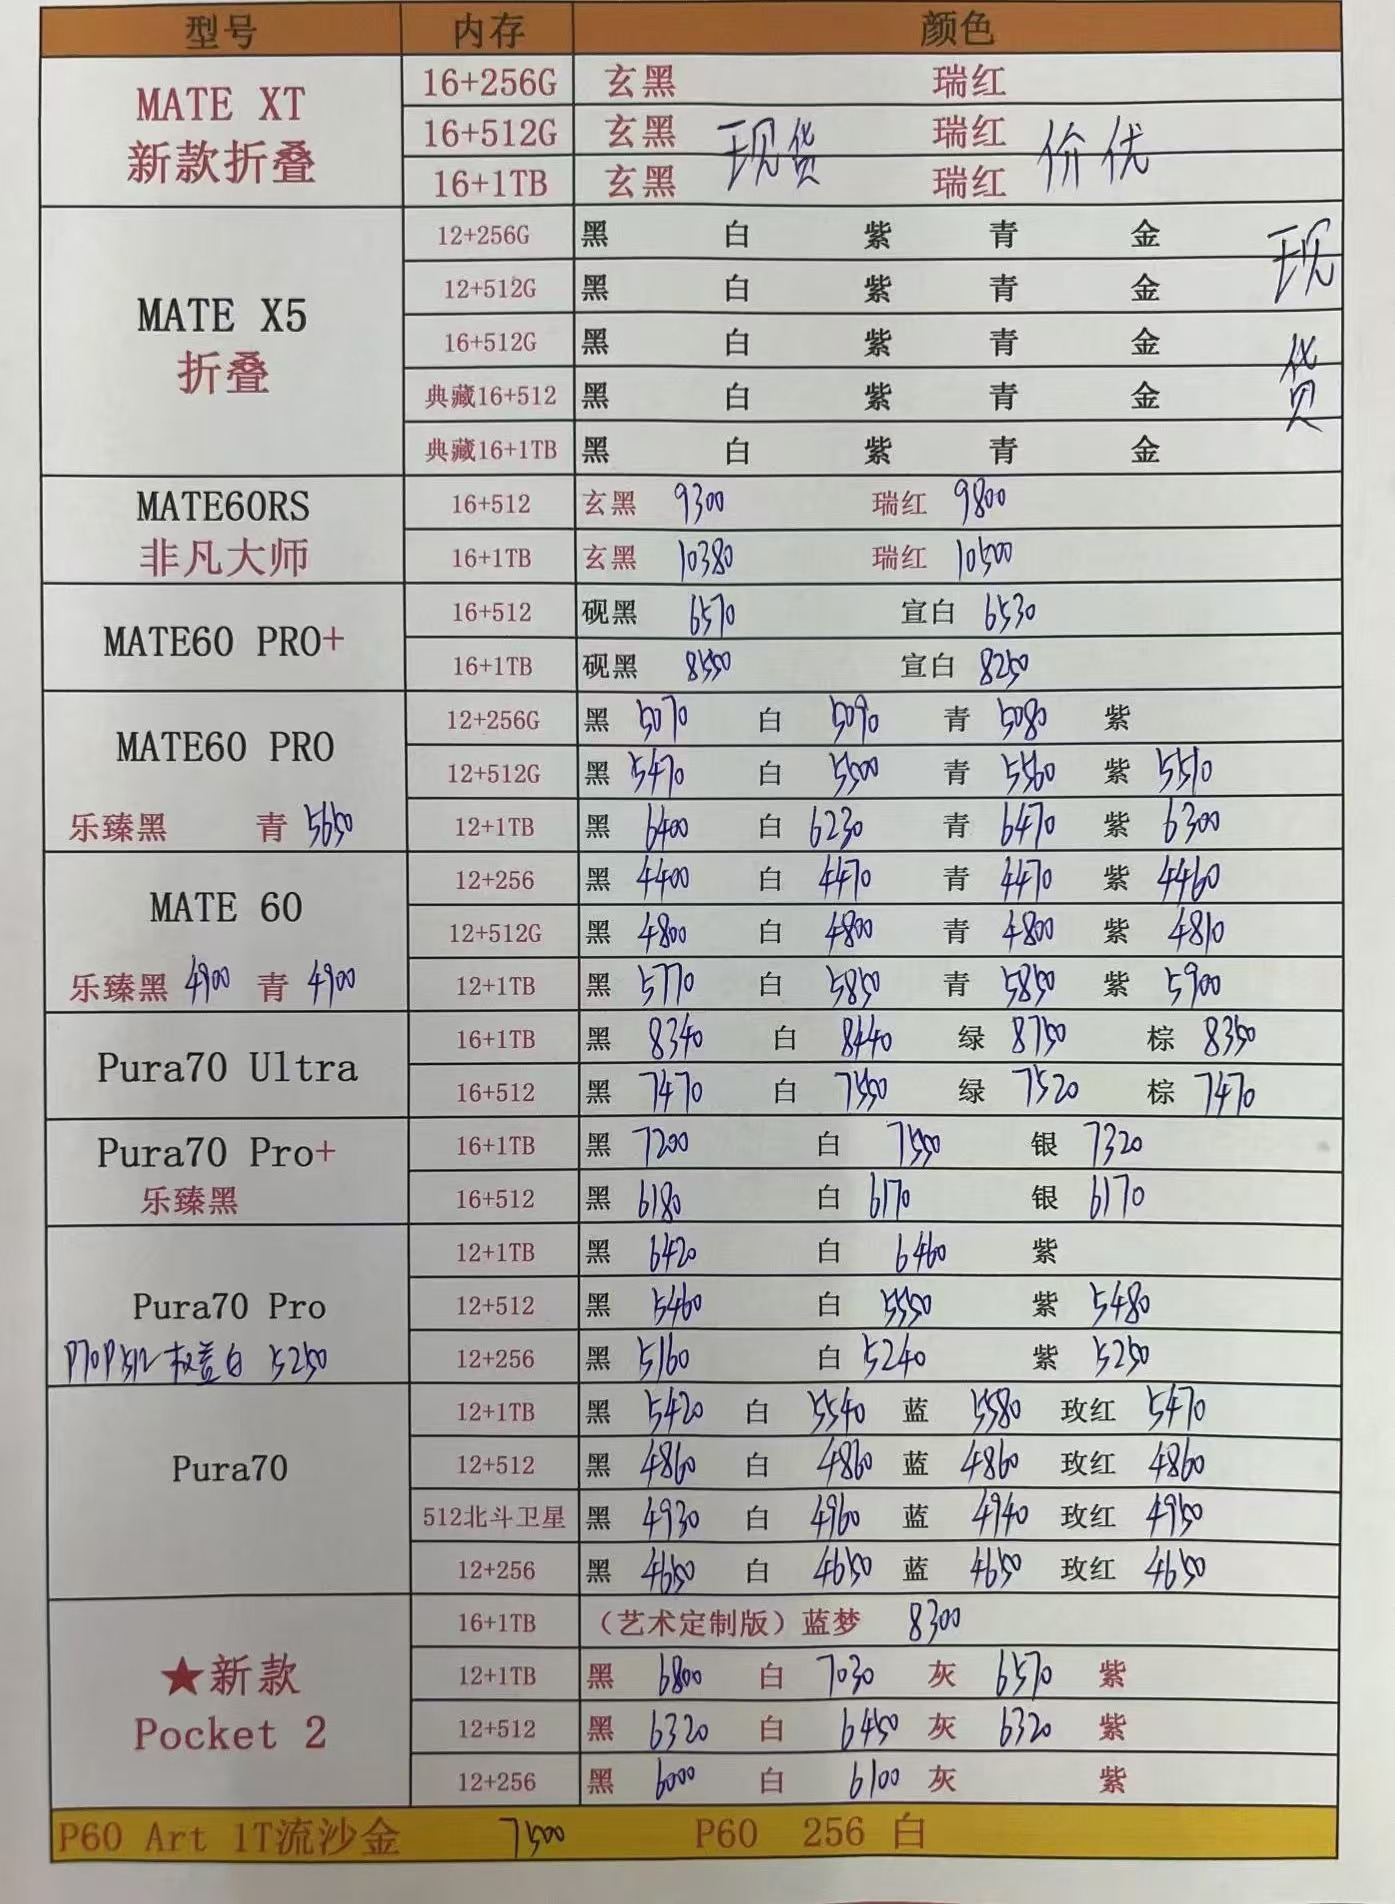 型号 内存 颜色
MATE XT
新款折叠
16+256G 玄黑 瑞红
16+512G 玄黑 现货 瑞红 价优
16+1TB 玄黑 瑞红
MATE X5
折叠
12+256G 黑 白 紫 青 金 现货
12+512G 黑 白 紫 青 金
16+512G 黑 白 紫 青 金
典藏16+512 黑 白 紫 青 金
典藏16+1TB 黑 白 紫 青 金
MATE60RS
非凡大师
16+512 玄黑 9300 瑞红 9800
16+1TB 玄黑 10380 瑞红 10500
MATE60 PRO+
16+512 砚黑 6570 宣白 6530
16+1TB 砚黑 8550 宣白 8250
MATE60 PRO
乐臻黑 青 5650
12+256G 黑 5070 白 5090 青 5080 紫
12+512G 黑 5470 白 5500 青 5560 紫 5510
12+1TB 黑 6400 白 6230 青 6470 紫 6300
MATE 60
乐臻黑 4900 青 4900
12+256 黑 4400 白 4470 青 4470 紫 4460
12+512G 黑 4800 白 4800 青 4800 紫 4810
12+1TB 黑 5770 白 5850 青 5850 紫 5900
Pura70 Ultra
16+1TB 黑 8340 白 8440 绿 8750 棕 8350
16+512 黑 7470 白 7550 绿 7520 棕 7470
Pura70 Pro+
乐臻黑
16+1TB 黑 7200 白 7550 银 7320
16+512 黑 6180 白 6170 银 6170
Pura70 Pro
P70P512 白 5250
12+1TB 黑 6420 白 6460 紫
12+512 黑 5460 白 5550 紫 5480
12+256 黑 5160 白 5240 紫 5250
Pura70
12+1TB 黑 5420 白 5540 蓝 5580 玫红 5470
12+512 黑 4860 白 4860 蓝 4860 玫红 4860
512北斗卫星 黑 4930 白 4960 蓝 4940 玫红 4950
12+256 黑 4650 白 4650 蓝 4650 玫红 4650
★新款
Pocket 2
16+1TB （艺术定制版）蓝梦 8300
12+1TB 黑 6800 白 7030 灰 6570 紫
12+512 黑 6320 白 6450 灰 6320 紫
12+256 黑 6000 白 6100 灰 紫
P60 Art 1T流沙金 7500 P60 256 白